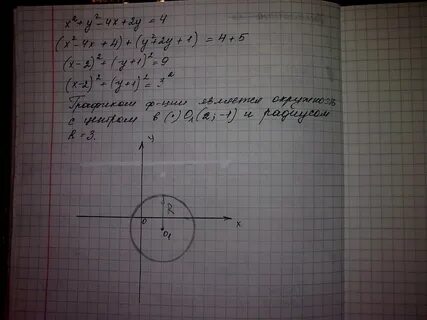 x² + y² - 4x + 2y = 4
(x² - 4x + 4) + (y² + 2y + 1) = 4 + 5
(x-2)² + (y+1)² = 9
(x-2)² + (y+1)² = 3²
Графиком ф-ции является окружность
с центром в (·) O₁ (2; -1) и радиусом
R = 3.
y
R
0
x
O₁